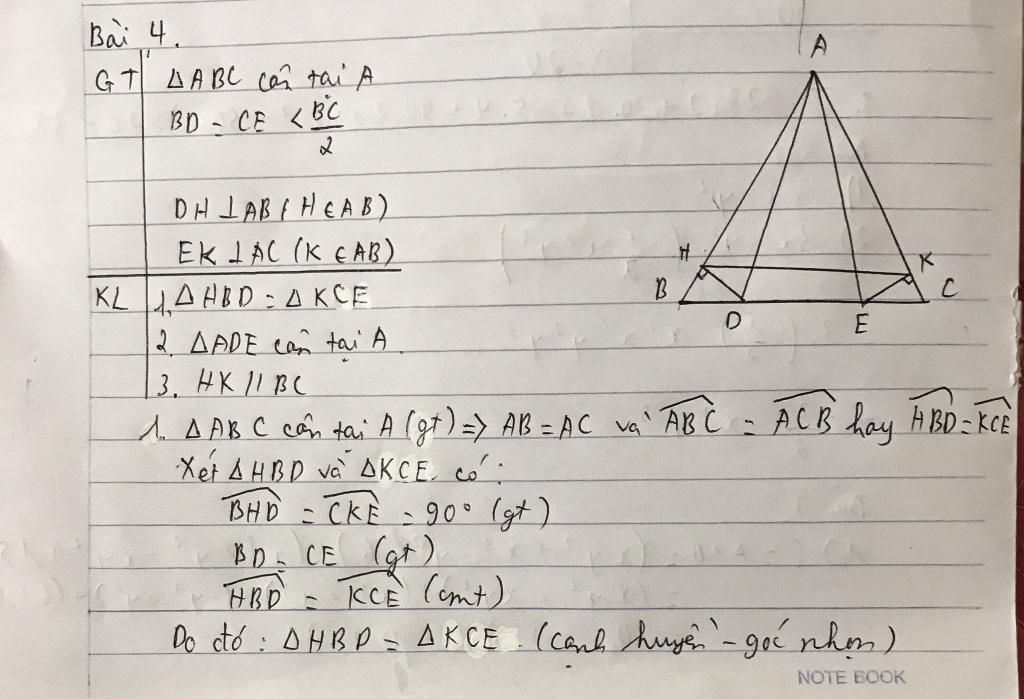 Bài 4.
GT ΔABC cân tại A
BD = CE < BC/2
DH ⊥ AB (H ∈ AB)
EK ⊥ AC (K ∈ AB)
KL 1, ΔHBD = ΔKCE
2. ΔADE cân tại A.
3. HK // BC
A
H
K
B
C
D
E
1. ΔABC cân tại A (gt) => AB = AC và \widehat{ABC} = \widehat{ACB} hay \widehat{HBD} = \widehat{KCE}
Xét ΔHBD và ΔKCE có:
\widehat{BHD} = \widehat{CKE} = 90° (gt)
BD = CE (gt)
\widehat{HBD} = \widehat{KCE} (cmt)
Do đó: ΔHBD = ΔKCE. (cạnh huyền - góc nhọn)
NOTE BOOK